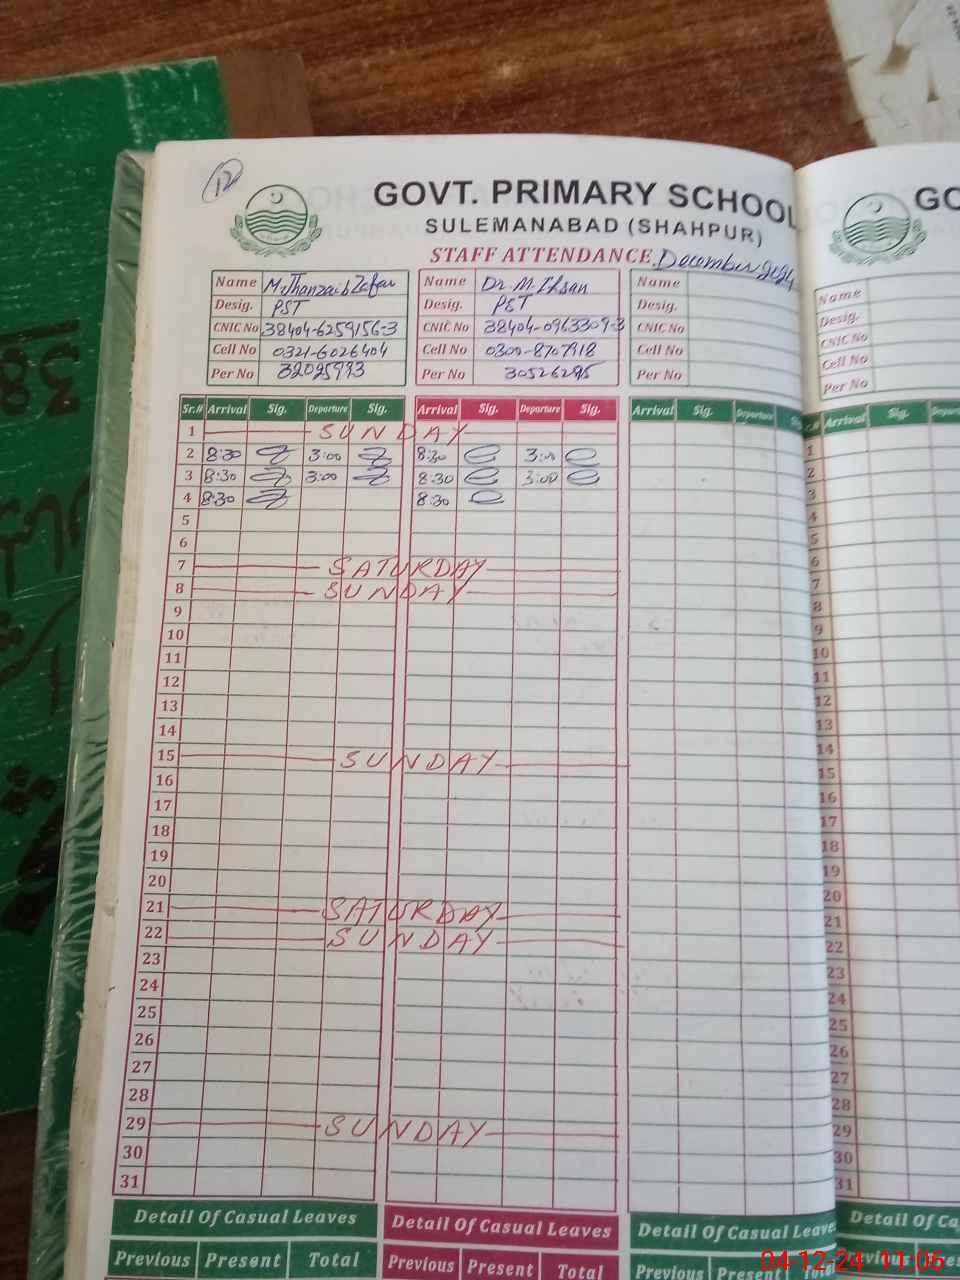 12
GOVT. PRIMARY SCHOOL GO
SULEMANABAD (SHAHPUR)
STAFF ATTENDANCE December 2024
Name M. Jhanzaib Zafar Name Dr. M. Ihsan Name Name
Desig. PST Desig. PST Desig. Desig.
CNIC No 38404-6259156-3 CNIC No 38404-0963309-3 CNIC No CNIC No
Cell No 0321-6026404 Cell No 0300-8707918 Cell No Cell No
Per No 32025993 Per No 30526295 Per No Per No
Sr.# Arrival Sig. Departure Sig. Arrival Sig. Departure Sig. Arrival Sig. Departure Arrival Sig.
1 SUNDAY 1
2 8:30 3:00 8:30 3:00 2
3 8:30 3:00 8:30 3:00 3
4 8:30 8:30 4
5 5
6 6
7 SATURDAY 7
8 SUNDAY 8
9 9
10 10
11 11
12 12
13 13
14 14
15 SUNDAY 15
16 16
17 17
18 18
19 19
20 20
21 SATURDAY 21
22 SUNDAY 22
23 23
24 24
25 25
26 26
27 27
28 28
29 SUNDAY 29
30 30
31 31
Detail Of Casual Leaves Detail Of Casual Leaves Detail Of Casual Leaves Detail Of Ca
Previous Present Total Previous Present Total Previous Present Total
04-12-24 11:06